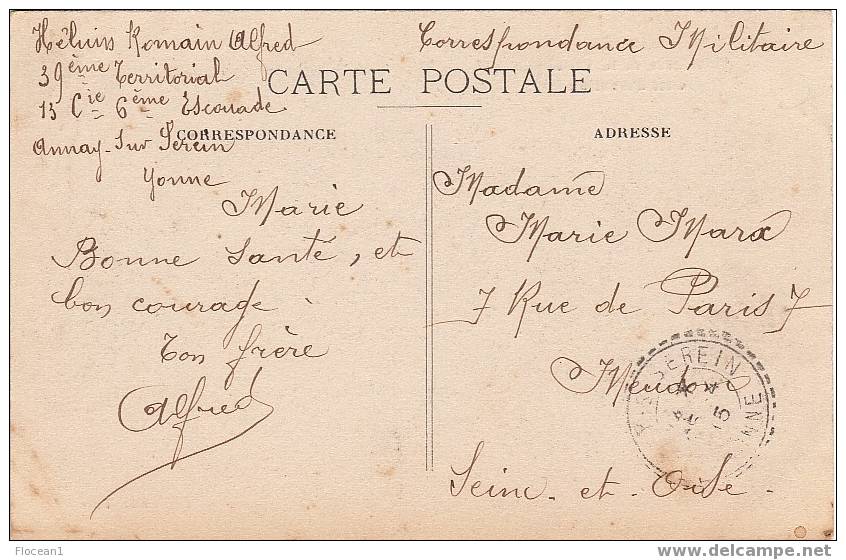 Héluin Romain Alfred
39ème Territorial
13 Cie 6ème Escouade
Annay-Sur Serein
Yonne
Correspondance Militaire
CARTE POSTALE
CORRESPONDANCE
Marie
Bonne santé, et
bon courage.
Ton frère
Alfred
ADRESSE
Madame
Marie Marx
7 Rue de Paris 7
Meudon
Seine-et-Oise-
SEREIN
Flocean1
www.delcampe.net